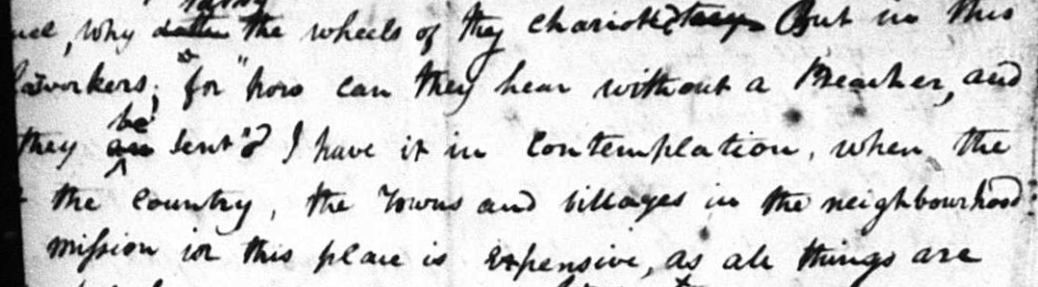 why the wheels of thy chariot? But in this
for "how can they hear without a Preacher, and
they be sent"? I have it in Contemplation, when the
the Country, the Towns and villages in the neighbourhood
mission in this place is Expensive, as all things are